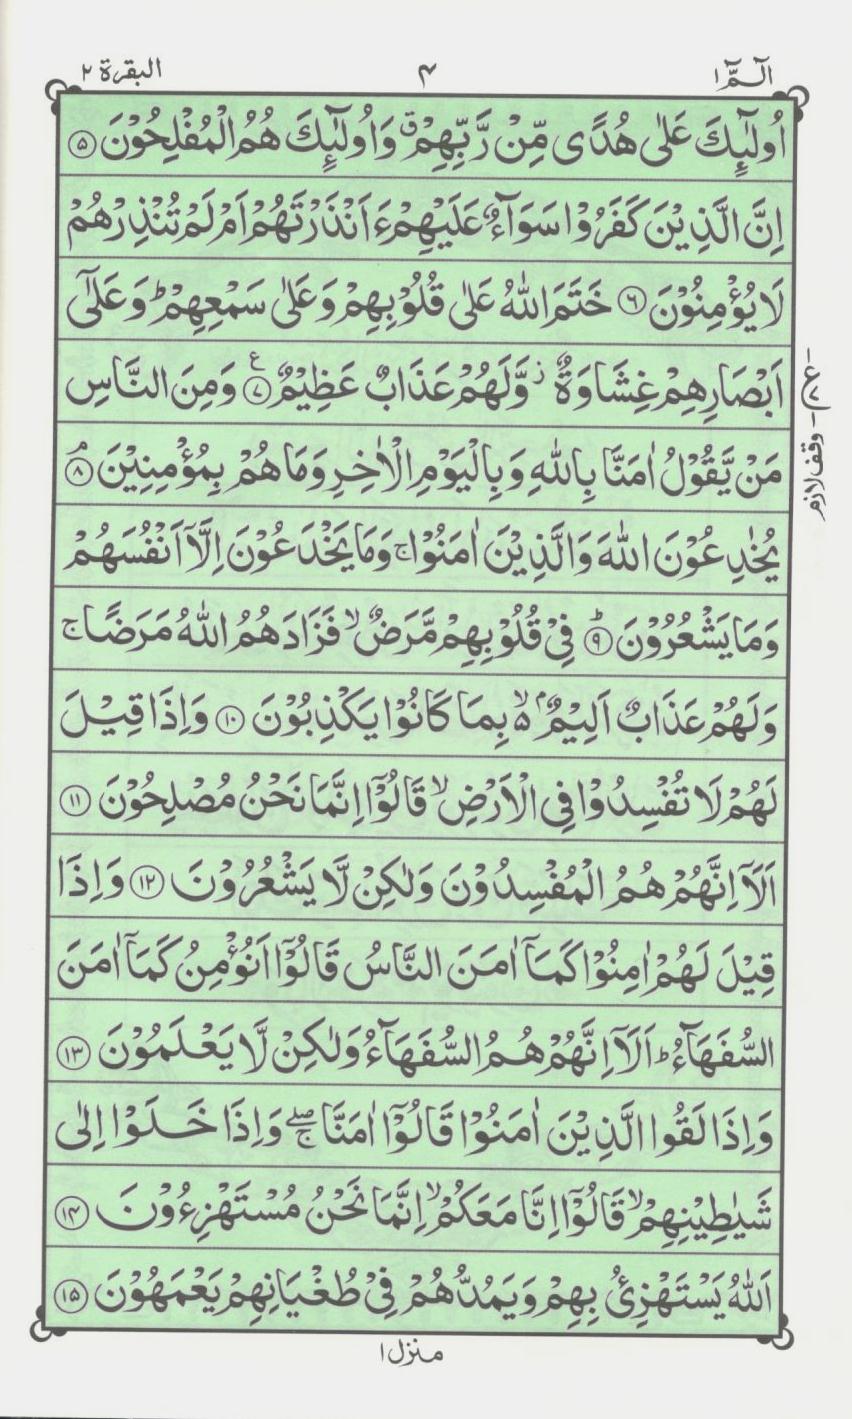 الٓمّٓ ۱ ۴ البقرة ۲
اُولٰٓئِكَ عَلٰى هُدًى مِّنْ رَّبِّهِمْ ۗ وَاُولٰٓئِكَ هُمُ الْمُفْلِحُوْنَ ۵
اِنَّ الَّذِيْنَ كَفَرُوْا سَوَآءٌ عَلَيْهِمْ ءَاَنْذَرْتَهُمْ اَمْ لَمْ تُنْذِرْهُمْ
لَا يُؤْمِنُوْنَ ۶ خَتَمَ اللّٰهُ عَلٰى قُلُوْبِهِمْ وَعَلٰى سَمْعِهِمْ ؕ وَعَلٰٓى
اَبْصَارِهِمْ غِشَاوَةٌ ز وَّلَهُمْ عَذَابٌ عَظِيْمٌ ۷ ع وَمِنَ النَّاسِ
مَنْ يَّقُوْلُ اٰمَنَّا بِاللّٰهِ وَبِالْيَوْمِ الْاٰخِرِ وَمَا هُمْ بِمُؤْمِنِيْنَ ۘ ۸
وقف لازم
يُخٰدِعُوْنَ اللّٰهَ وَالَّذِيْنَ اٰمَنُوْا ۚ وَمَا يَخْدَعُوْنَ اِلَّآ اَنْفُسَهُمْ
وَمَا يَشْعُرُوْنَ ؕ ۹ فِيْ قُلُوْبِهِمْ مَّرَضٌ ۙ فَزَادَهُمُ اللّٰهُ مَرَضًا ۚ
وَلَهُمْ عَذَابٌ اَلِيْمٌ ۢ ۙ بِمَا كَانُوْا يَكْذِبُوْنَ ۱۰ وَاِذَا قِيْلَ
لَهُمْ لَا تُفْسِدُوْا فِى الْاَرْضِ ۙ قَالُوْٓا اِنَّمَا نَحْنُ مُصْلِحُوْنَ ۱۱
اَلَآ اِنَّهُمْ هُمُ الْمُفْسِدُوْنَ وَلٰكِنْ لَّا يَشْعُرُوْنَ ۱۲ وَاِذَا
قِيْلَ لَهُمْ اٰمِنُوْا كَمَآ اٰمَنَ النَّاسُ قَالُوْٓا اَنُؤْمِنُ كَمَآ اٰمَنَ
السُّفَهَآءُ ؕ اَلَآ اِنَّهُمْ هُمُ السُّفَهَآءُ وَلٰكِنْ لَّا يَعْلَمُوْنَ ۱۳
وَاِذَا لَقُوا الَّذِيْنَ اٰمَنُوْا قَالُوْٓا اٰمَنَّا ۚۖ وَاِذَا خَلَوْا اِلٰى
شَيٰطِيْنِهِمْ ۙ قَالُوْٓا اِنَّا مَعَكُمْ ۙ اِنَّمَا نَحْنُ مُسْتَهْزِءُوْنَ ۱۴
اَللّٰهُ يَسْتَهْزِئُ بِهِمْ وَيَمُدُّهُمْ فِيْ طُغْيَانِهِمْ يَعْمَهُوْنَ ۱۵
منزل ۱